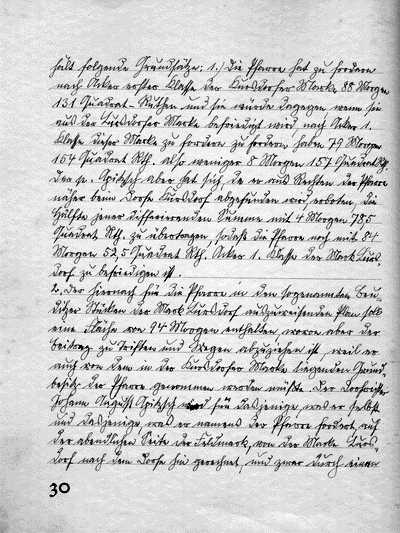 hält folgende Grundsätze: 1.) Die Pfarre hat zu fordern
nach Acker erster Klasse der Cursdorfer Marke 88 Morgen
131 Quadrat-Ruthen und sie würde dagegen wenn sie
aus der Cursdorfer Marke befriedigt wird nach Acker 1.
Klasse dieser Marke zu fordern zu fordern haben 79 Morgen
154 Quadrat Rth. also weniger 8 Morgen 157 Quadrat Rth.
Der p. Spitzsch aber hat sich, da er aus Rechten der Pfarre
näher beim Dorfe Cursdorf abgefunden wird, erboten, die
Hälfte jener differierenden Summe mit 4 Morgen 78,5
Quadrat Rth. zu übertragen, sodaß die Pfarre noch mit 84
Morgen 52,5 Quadrat Rth. Acker 1. Klasse der Mark Curs-
dorf zu befriedigen ist.
2. Der hiernach für die Pfarre in den sogenannten
Stücken der Mark Cursdorf auszuweisenden Plan soll
eine Fläche von 94 Morgen enthalten wovon aber der
Beitrag zu Triften und Wegen abzuziehen ist, weil er
auch von dem in der Cursdorfer Marke liegenden Grund-
besitz der Pfarre genommen werden müßte. Der
Johann August Spitzsch wird für dasjenige, was er selbst
und dasjenige, was er namens der Pfarre fordert, auf
der abendlichen Seite der Feldmark, von der Marke Curs-
dorf nach dem Dorfe hin gerechnet, und zwar durch einen
30